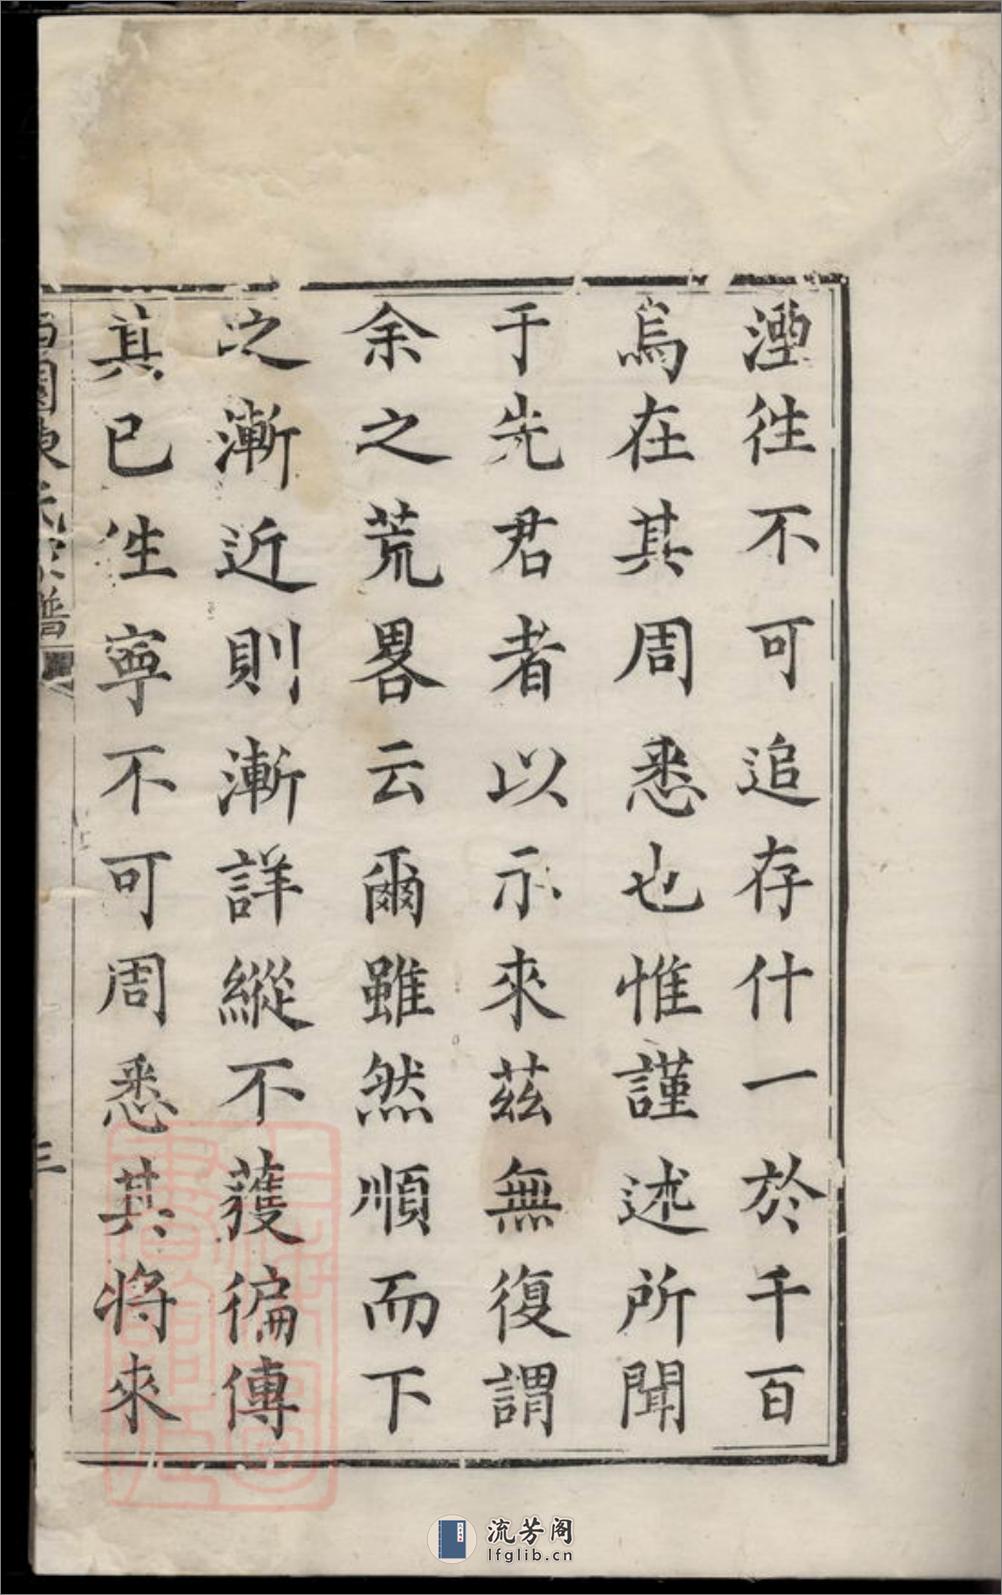 湮徃不可追存什一於千百
烏在其周悉也惟謹述所聞
于先君者以示來茲無復謂
余之荒畧云爾雖然順而下
之漸近則漸詳縱不獲徧傳
其已徃寧不可周悉其將來
氏宗譜
三
流芳阁
lfglib.cn